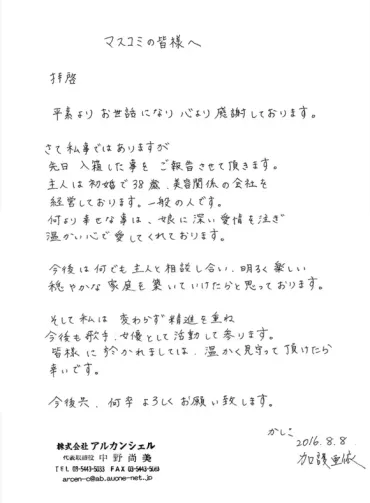 マスコミの皆様へ
拝啓
平素より お世話になり 心より 感謝しております。
さて私事ではありますが
先日 入籍した事を ご報告させて頂きます。
主人は 初婚で 38歳、美容関係の会社を
経営しております。一般の人です。
何より 幸せな事は、娘に深い愛情を注ぎ
温かい心で愛してくれております。
今後は何でも主人と相談し合い、明るく楽しい
穏やかな家庭を築いていけたらと思っております。
そして私は 変わらず精進を重ね
今後も歌手、女優として活動して参ります。
皆様に於かれましては、温かく見守って頂けたら
幸いです。
今後共、何卒よろしくお願い致します。
かしこ
2016.8.8
加護亜依
株式会社 アルカンシェル
代表取締役 中野尚美
TEL 03-5443-5033 FAX 03-5443-5083
arcen-c@ab.auone-net.jp